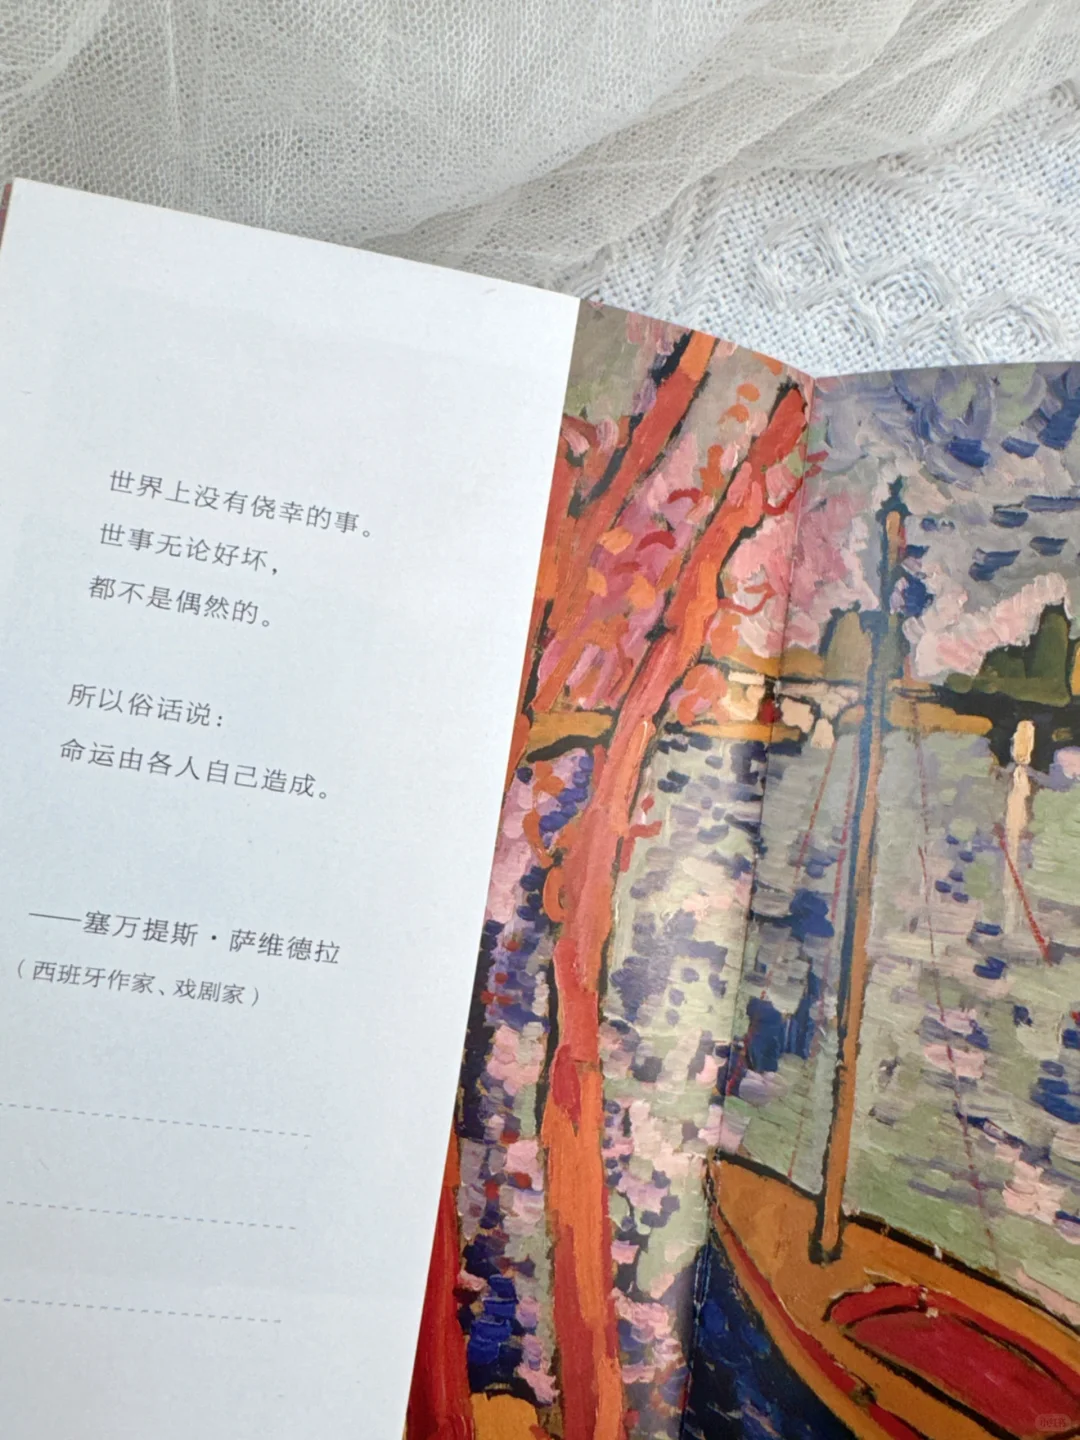 世界上没有侥幸的事。
世事无论好坏，
都不是偶然的。
所以俗话说：
命运由各人自己造成。
——塞万提斯·萨维德拉
（西班牙作家、戏剧家）